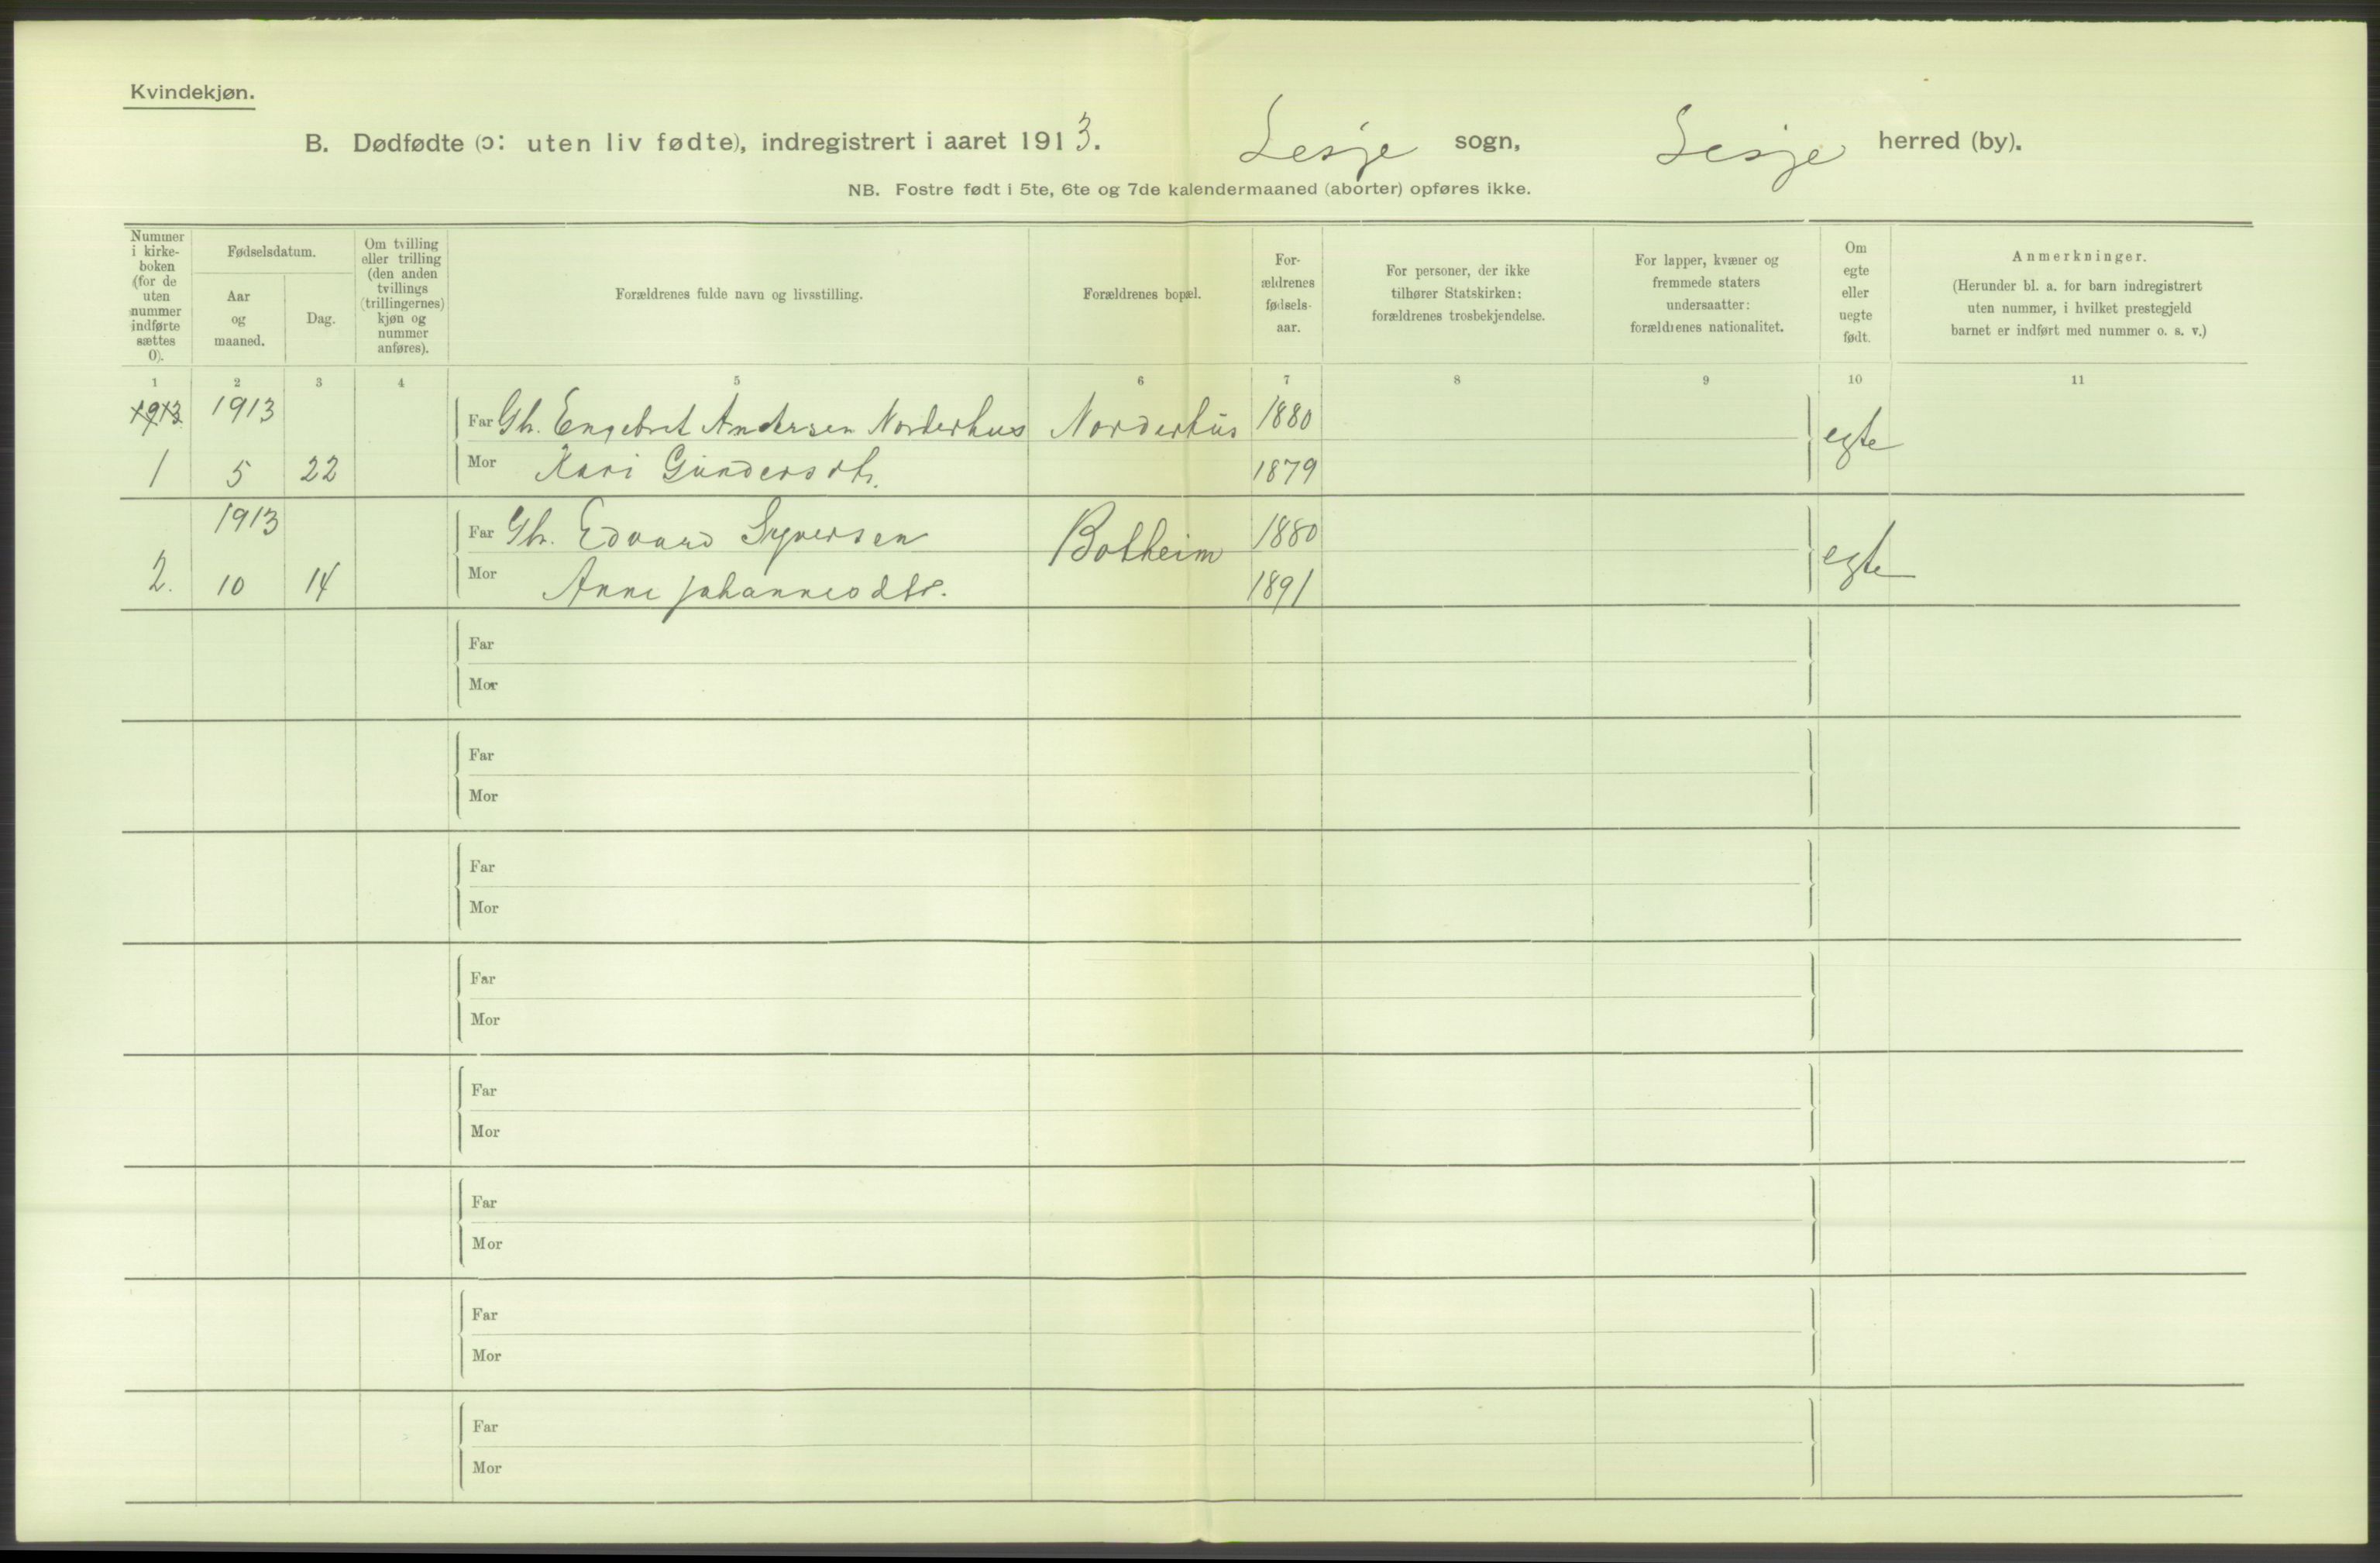 Kvindekjøn.
B. Dødfødte (ɔ: uten liv fødte), indregistrert i aaret 1913. Lesje sogn, Lesje herred (by).
NB. Fostre født i 5te, 6te og 7de kalendermaaned (aborter) opføres ikke.
Nummer i kirke-boken (for de uten nummer indførte sættes 0).
Fødselsdatum.
Aar og maaned.
Dag.
Om tvilling eller trilling (den anden tvillings (trillingernes) kjøn og nummer anføres).
Forældrenes fulde navn og livsstilling.
Forældrenes bopæl.
For-ældrenes fødsels-aar.
For personer, der ikke tilhører Statskirken: forældrenes trosbekjendelse.
For lapper, kvæner og fremmede staters undersaatter: forældrenes nationalitet.
Om egte eller uegte født.
Anmerkninger.
(Herunder bl. a. for barn indregistrert uten nummer, i hvilket prestegjeld barnet er indført med nummer o. s. v.)
1 2 3 4 5 6 7 8 9 10 11
1913 1913 Far Gb. Engebret Andersen Norderhus Norderhus 1880 egte
1 5 22 Mor Kari Gundersdtr. 1879
1913 Far Gb. Edvard Syversen Botheim 1880 egte
2. 10 14 Mor Anne Johannesdtr. 1891
Far
Mor
Far
Mor
Far
Mor
Far
Mor
Far
Mor
Far
Mor
Far
Mor
Far
Mor